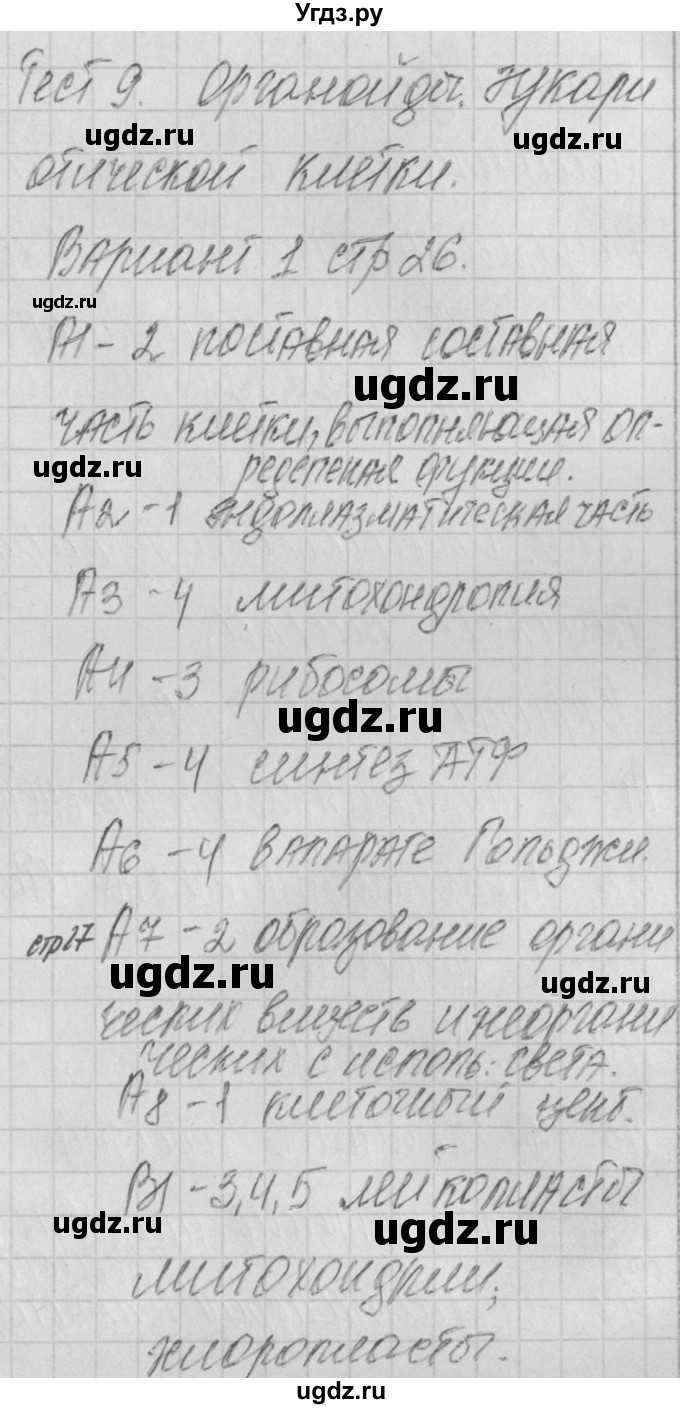 Угдз.ру
Тест 9. Органойды. Эукари
отической клетки.
Вариант 1 стр 26.
А1 - 2 поставная составная
часть клетки, выполняющая оп-
ределеная функции.
А2 - 1 эндоплазматическая часть
А3 - 4 митохондропия
А4 - 3 рибосомы
А5 - 4 синтез АТФ
А6 - 4 в апарате Гольджи.
стр27 А7 - 2 образование органи
ческих веществ и неоргани
ческих с исполь: света.
А8 - 1 клеточный цент.
В1 - 3,4,5 лейкопласты
митохондрии;
хлоропласты.
ugdz.ru
ugdz.ru
ugdz.ru
ugdz.ru
ugdz.ru
ugdz.ru
ugdz.ru
ugdz.ru
ugdz.ru
ugdz.ru
ugdz.ru
ugdz.ru